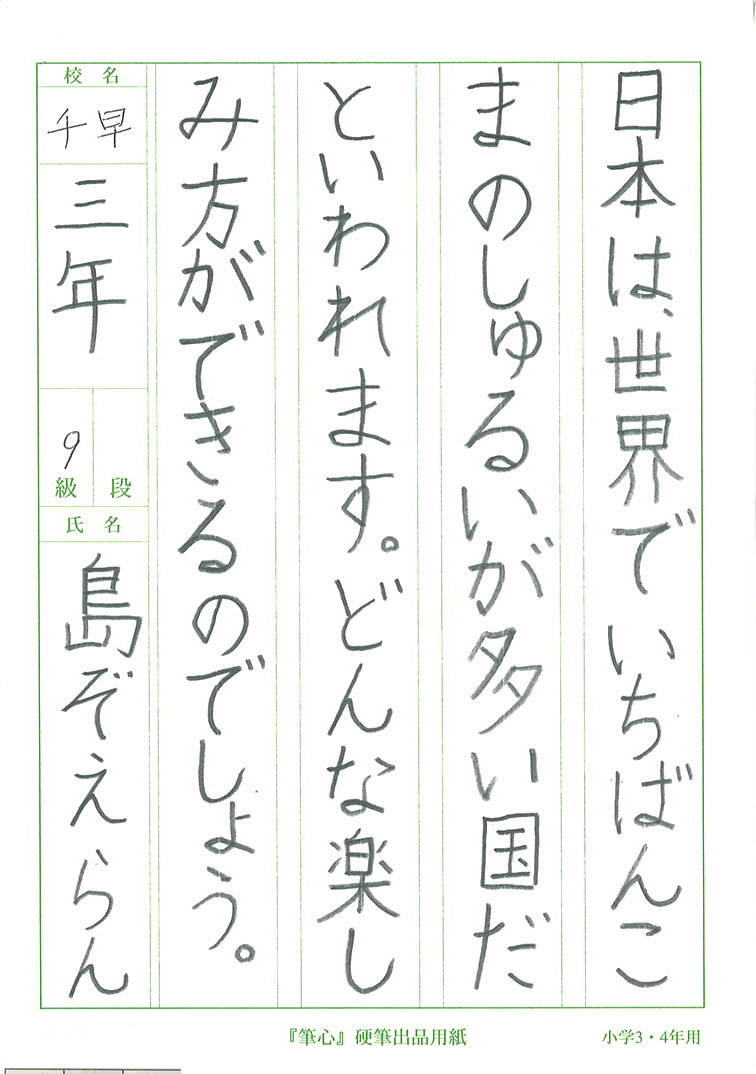 日本は、世界でいちばんこ
まのしゅるいが多い国だ
といわれます。どんな楽し
み方ができるのでしょう。
校名
千早
三年
9
級
段
氏名
島ぞえらん
『筆心』硬筆出品用紙
小学3・4年用